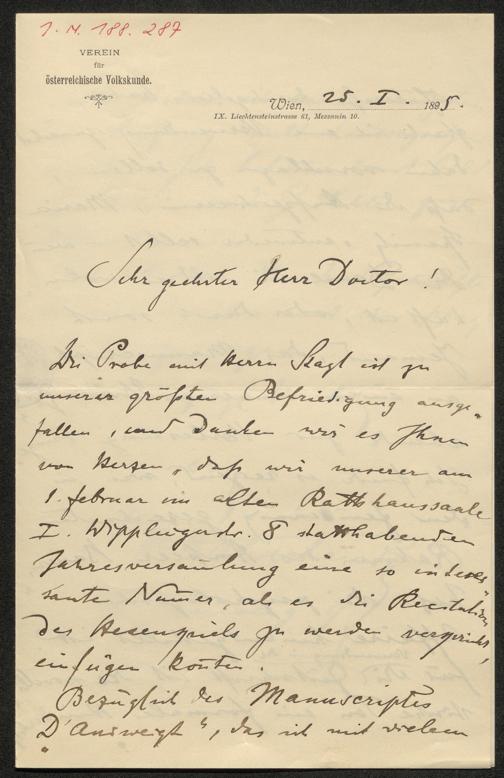 J. N. 188. 287
VEREIN
für
österreichische Volkskunde.
Wien, 25. I. 1895.
IX. Liechtensteinstrasse 61, Mezzanin 10.
Sehr geehrter Herr Doctor!
Die Probe mit Herrn Stagl ist zu
unserer größten Befriedigung ausge-
fallen, und danken wir es Ihnen
von Herzen, daß wir unserer am
1. Februar im alten Rathhaussaale
I. Wipplingerstr. 8 statthabenden
Jahresversamlung eine so interes-
sante Numer, als es die Recitation
des Hexenspiels zu werden verspricht,
einfügen konten.
Bezüglich des Manuscriptes
„D'                    “, das ich mit vielem